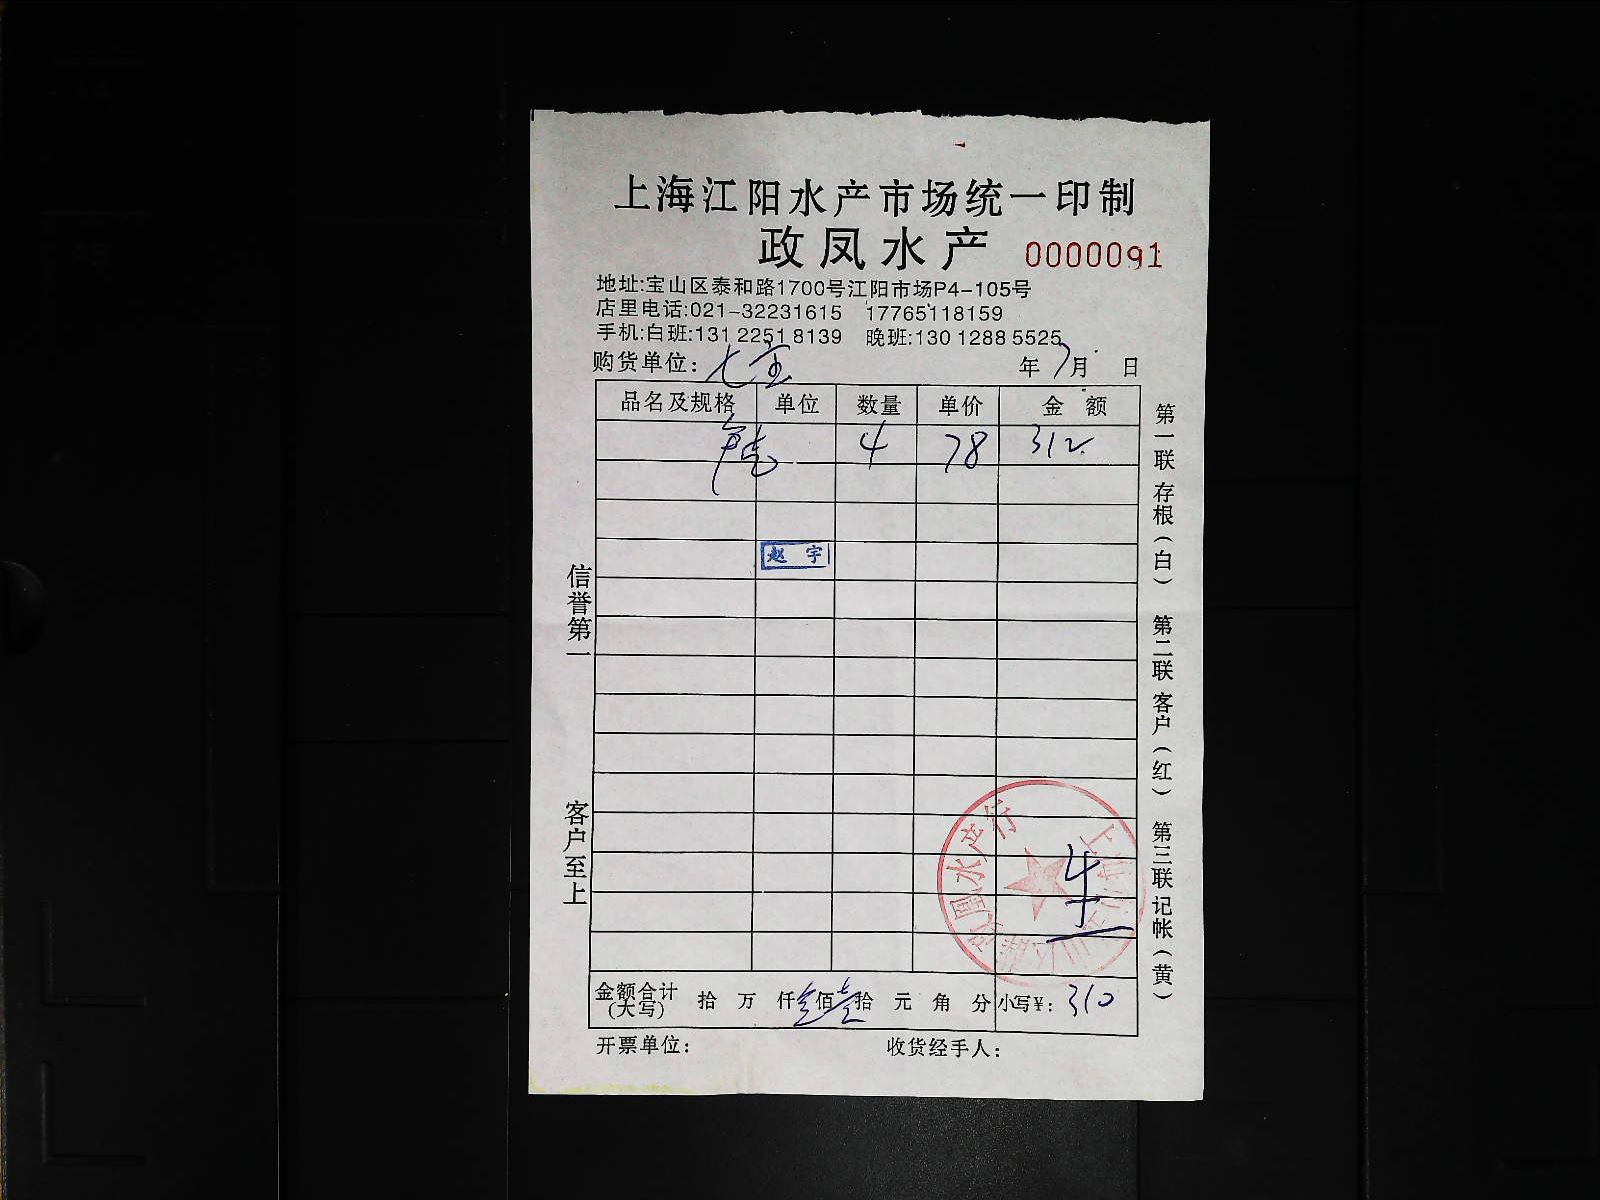 上海江阳水产市场统一印制
政凤水产 0000091
地址:宝山区泰和路1700号江阳市场P4-105号
店里电话:021-32231615 17765118159
手机:白班:131 2251 8139 晚班:130 1288 5525
购货单位: 七宝 年 7月 日
品名及规格 单位 数量 单价 金额
4 78 312
赵宇
信誉第一
客户至上
第一联 存根(白) 第二联 客户(红) 第三联 记帐(黄)
水产行
金额合计(大写) 拾 万 仟 叁佰壹拾 元 角 分 小写¥: 310
开票单位: 收货经手人: